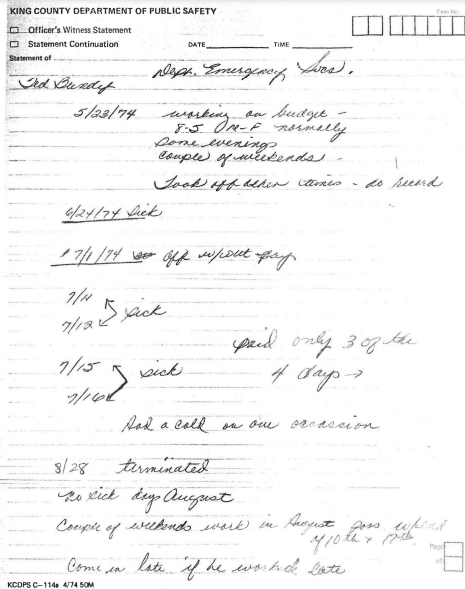 KING COUNTY DEPARTMENT OF PUBLIC SAFETY
Case No.
Officer's Witness Statement
Statement Continuation
DATE TIME
Statement of
Dept. Emergency Svcs.
Ted Bundy
5/23/74 working on budget -
8-5 M-F normally
some evenings
couple of weekends -
Took off other times - no record
6/24/74 sick
7/1/74 off w/out pay
7/11
7/12 sick
paid only 3 of the
4 days →
7/15 sick
7/16
Had a cold on one occassion
8/28 terminated
no sick days August
Couple of weekends work in August poss w/end
of 10th + 17th
Page
of
Come in late if he worked late
KCDPS C-114a 4/74 50M